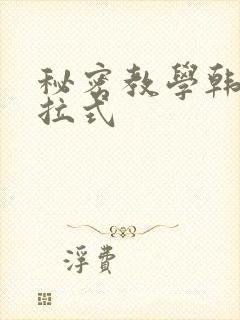 秘密教學韩
拉式
浮費